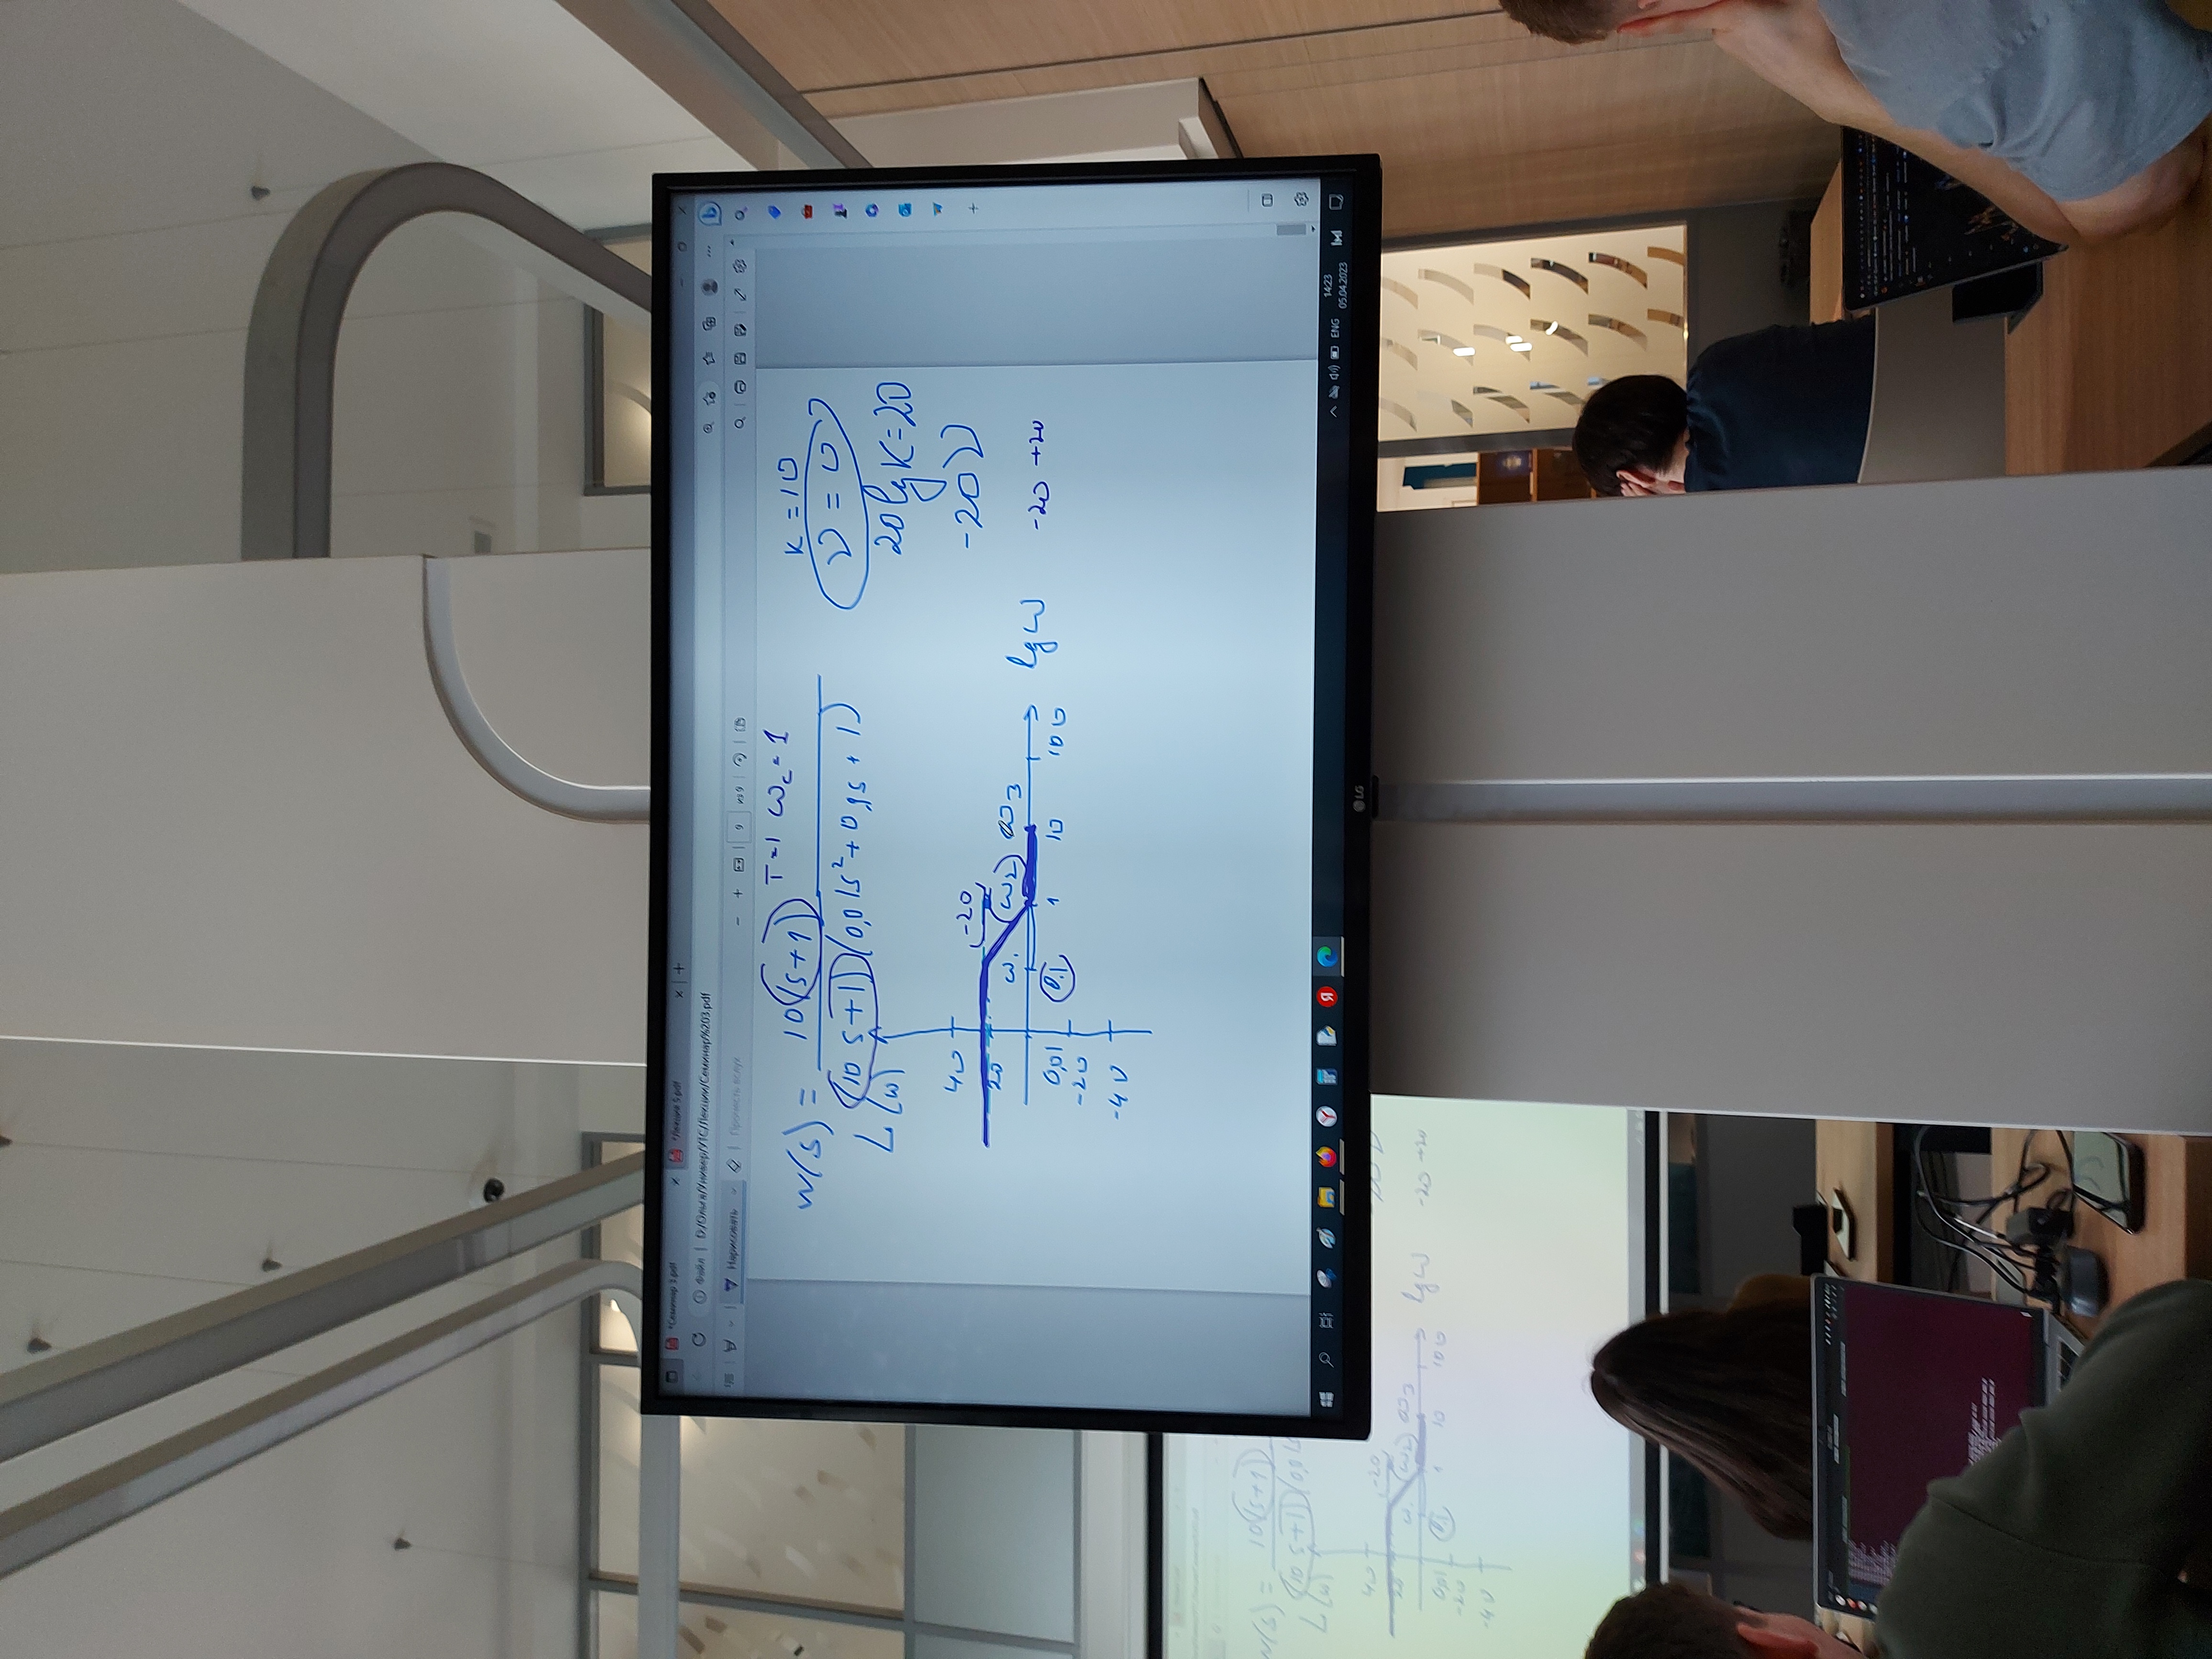 *Семинар 3.pdf
*Лекция 5.pdf
Файл | D:/Ольга/Универ/УТС/Лекции/Семинар%203.pdf
Нарисовать
Прочесть вслух
9 из 9
w(s) = 10(s+1) / (10s+1)(0,01s²+0,1s+1)
T=1 ω_c=1
K=10
ν=0
20lgK=20
-20ν
-20 +20
L(ω)
40
-20
20
ω₁ ω₂ ω₃
lgω
0,01 0.1 1 10 100
-20
-40
ENG
14:23
05.04.2023
LG
w(s) = 10(s+1)
(10s+1)(0,01s
L(ω)
40
-20
20
ω₁ ω₂ ω₃
lgω
-20 +20
0,01 0.1 1 10 100
-20
-40